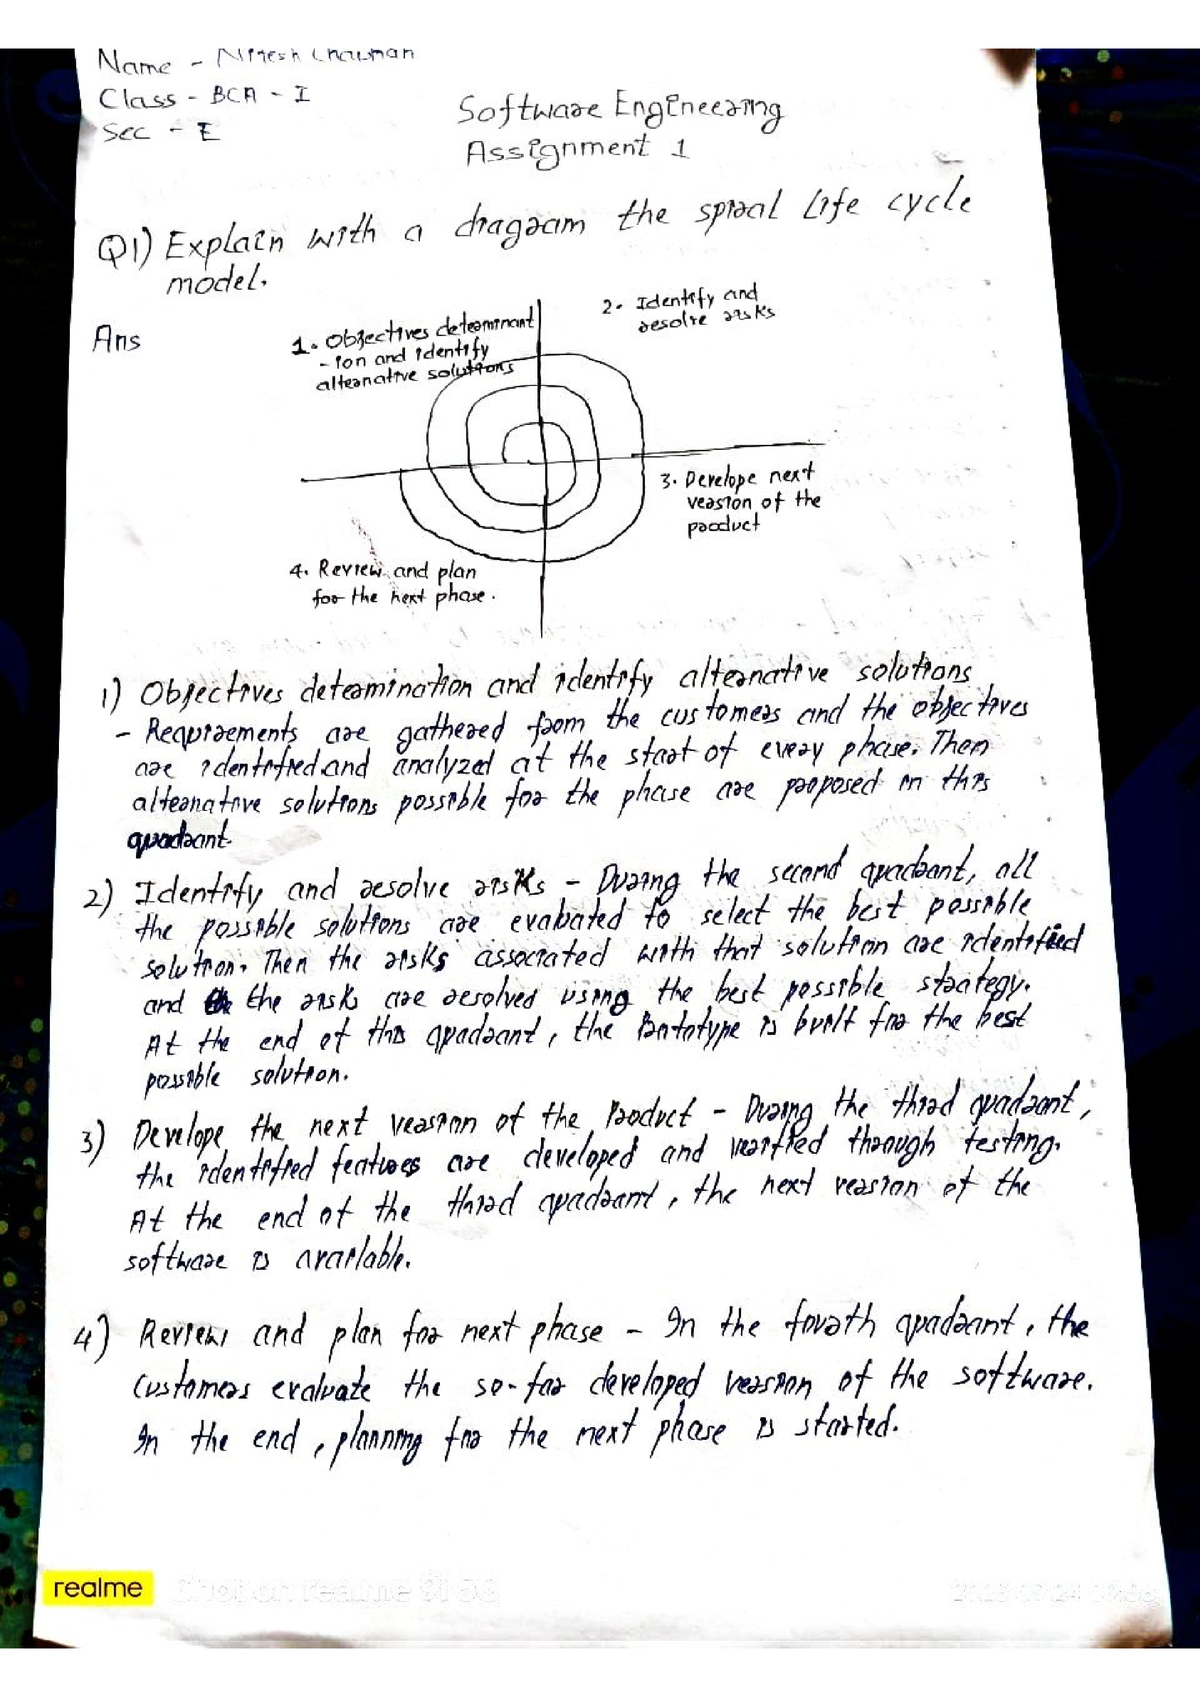 Name - Nitesh Chauhan
Class - BCA - I
Sec - E
Software Engineering
Assignment 1
Q1) Explain with a diagram the spiral life cycle
model.
Ans
1. Objectives determinant
- ion and identify
alternative solutions
2. Identify and
resolve risks
3. Develope next
version of the
product
4. Review and plan
for the next phase.
1) Objectives determination and identify alternative solutions
- Requirements are gathered from the customers and the objectives
are identified and analyzed at the start of every phase. Then
alternative solutions possible for the phase are proposed in this
quadrant.
2) Identify and resolve risks - During the second quadrant, all
the possible solutions are evaluated to select the best possible
solution. Then the risks associated with that solution are identified
and the risks are resolved using the best possible strategy.
At the end of this quadrant, the Prototype is built for the best
possible solution.
3) Develope the next version of the Product - During the third quadrant,
the identified features are developed and verified through testing.
At the end of the third quadrant, the next version of the
software is available.
4) Review and plan for next phase - In the fourth quadrant, the
Customers evaluate the so-far developed version of the software.
In the end, planning for the next phase is started.
realme Shot on realme 9i 5G